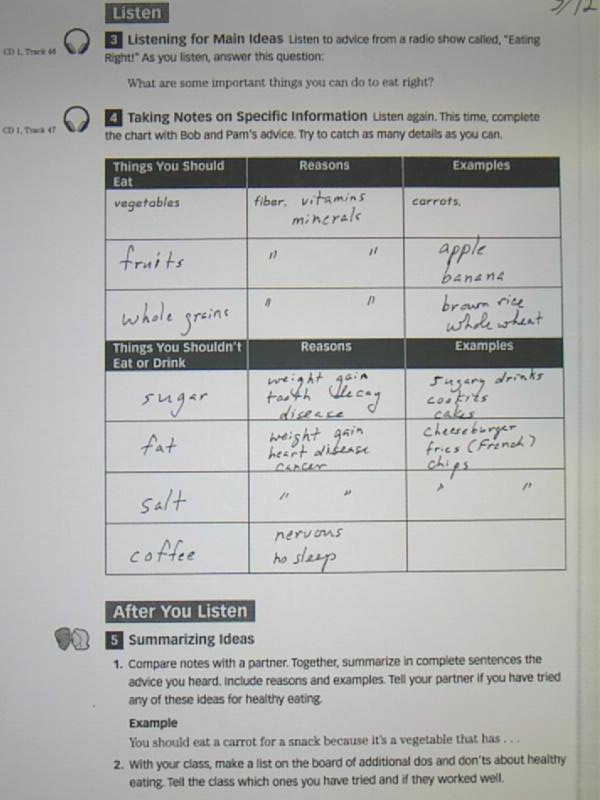 3/12
Listen
CD 1, Track 46
3 Listening for Main Ideas Listen to advice from a radio show called, "Eating
Right!" As you listen, answer this question:
What are some important things you can do to eat right?
CD 1, Track 47
4 Taking Notes on Specific Information Listen again. This time, complete
the chart with Bob and Pam's advice. Try to catch as many details as you can.
Things You Should Eat Reasons Examples
vegetables fiber, vitamins minerals carrots,
fruits " " apple banana
whole grains " " brown rice whole wheat
Things You Shouldn't Eat or Drink Reasons Examples
sugar weight gain tooth decay disease sugary drinks cookies cakes
fat weight gain heart disease cancer cheeseburger fries (French) chips
salt " " " "
coffee nervous no sleep
After You Listen
5 Summarizing Ideas
1. Compare notes with a partner. Together, summarize in complete sentences the
advice you heard. Include reasons and examples. Tell your partner if you have tried
any of these ideas for healthy eating.
Example
You should eat a carrot for a snack because it's a vegetable that has . . .
2. With your class, make a list on the board of additional dos and don'ts about healthy
eating. Tell the class which ones you have tried and if they worked well.